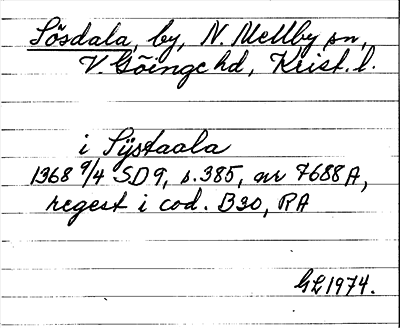 Sösdala, by, N. Mellby sn,
V. Göinge hd, Krist. l.
i Sijstaala
1368 9/4 SD 9, s. 385, nr 7688A,
regest i cod. B20, RA
GL 1974.